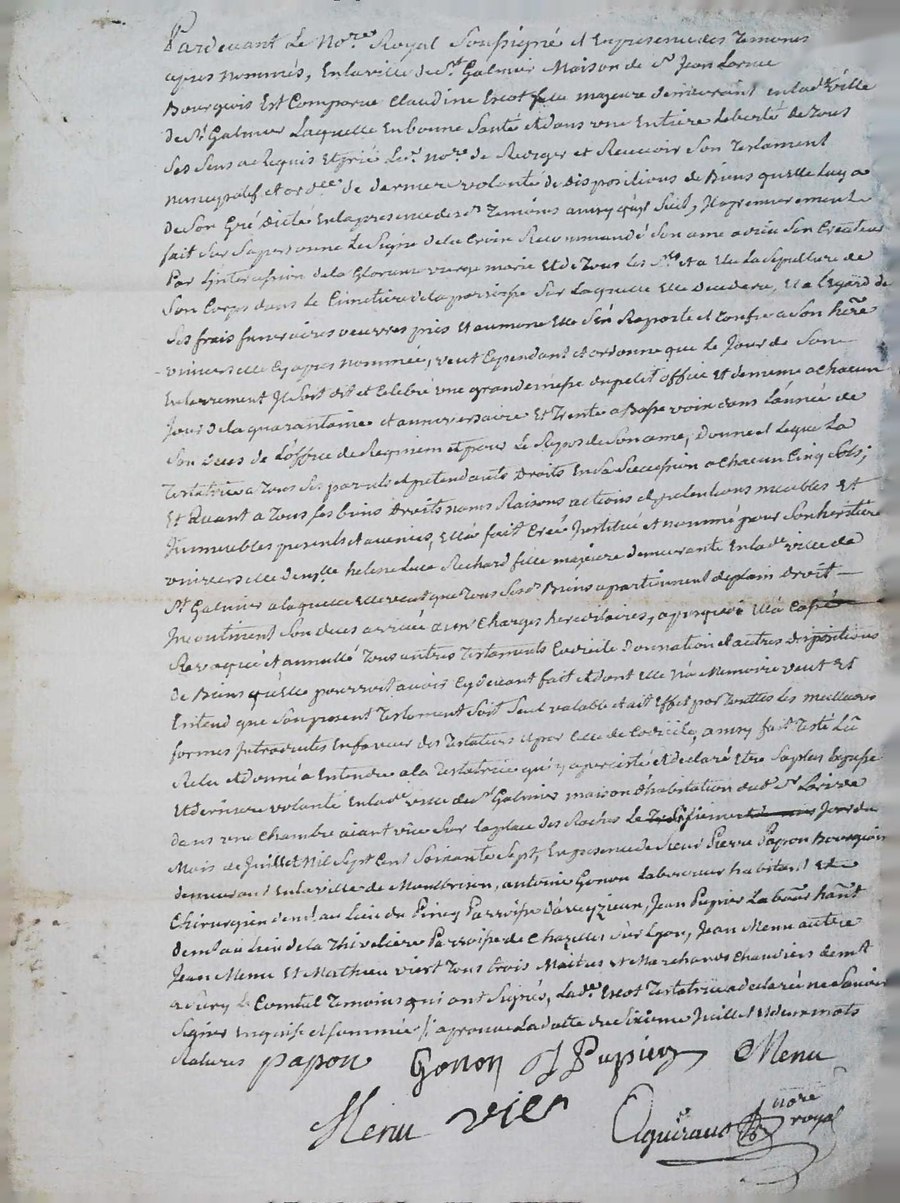 Pardevant Le No.re Royal Soussigné et En presence des Temoins
apres nommés, En la ville de St Galmier Maison de Sr Jean Lorme
Bourgeois Est Comparue Claudine Escot fille majeure demeurant en lad.e ville
de St Galmier Laquelle En bonne Santé et dans une Entiere Liberté de tous
Ses Sens a Requis et prié Led. no.re de Rediger et Recevoir Son Testament
nuncupatif et ord.re de derniere volonté de dispositions de Biens quelle luy a
de Son Gré Dicté En la presence de temoins ainsy Suit, premierement
fait Sur Sa personne Le Signe de la Croix Recommandé Son ame a dieu Son Createur
Par L'intercession de la Glorieuse vierge marie Et de Tous les Sts Et a Elu La Sepulture de
Son Corps dans le Cimetiere de la paroisse Sur Laquelle Elle decedera, Et a l'Egard de
Ses frais funeraires oeuvres pies Et aumone Elle S'en Raporte et Confie a Son here
universelle Cy apres nommée, veut Cependant et ordonne que le Jour de Son
Enterrement Il Soit dit et Celebré une grande messe du petit office Et de meme a chacun
Jour de la quarantaine et anniversaire Et Trente a Basse voix dans L'année de
Son deces de L'office de Requiem et pour Le Repos de Son ame, donne et Legue La
Testatrice a Tous Ses parents et pretendants Droits En Sa Succession a Chacun Cinq Sols;
Et Quant a Tous Ses biens Droits noms Raisons actions et pretentions meubles Et
Immeubles presents et avenirs, Elle a fait Créé Institué et nommé pour Son heritiere
universelle dem.lle helene Luce Richard fille majeure demeurante En lad.e ville de
St Galmier a laquelle Elle veut que Tous Sesd. Biens apartiennent de plain droit
Incontinent Son deces arrivé aux Charges hereditaires, Elle a Cassé
Revoqué et annullé Tous autres Testaments Codicile donnation et autres dispositions
de Biens qu'Elle pourroit avoir Cy devant fait et dont Elle N'a Memoire veut Et
Entend que Son present Testament Soit Seul valable et ait Effet par Touttes les meilleures
formes Introduites En faveur des Testateurs et par Celle de Codicile, ainsy fait Testé Lu
Relu et donné a Entendre a la Testatrice qui y a persisté et declaré Etre Sa plus Expresse
Et derniere volonté En lad.e ville de St Galmier maison d'habitation dud. Sr Lorme
dans une Chambre aiant vue Sur la place des Roches Le Jour du
Mois de Juillet Mil Sept Cent Soixante Sept, En presence de Sieur Pierre Papon Bourgeois
demeurant En la ville de Montbrison, antoine Gonon Laboureur habitant Et
Chirurgien dem.t au Lieu du Piney Parroisse d'aveyzieux, Jean Pupier Labour. habt
dem.t au Lieu de la Thiveliere Parroisse de Chazelles Sur Lyon, Jean Menu autre
Jean Menu Et Mathieu viert Tous trois Maitres et Marchands Chauviers dem.t
a Sury le Comtal Temoins qui ont Signés, Lad.e Escot Testatrice a declaré ne Savoir
Signer enquise et Sommée / aprouvé La datte du Sixieme Juillet et deux mots
Ratures papon Gonon J Pupier Menu
Menu vier Aguiraud nore royal